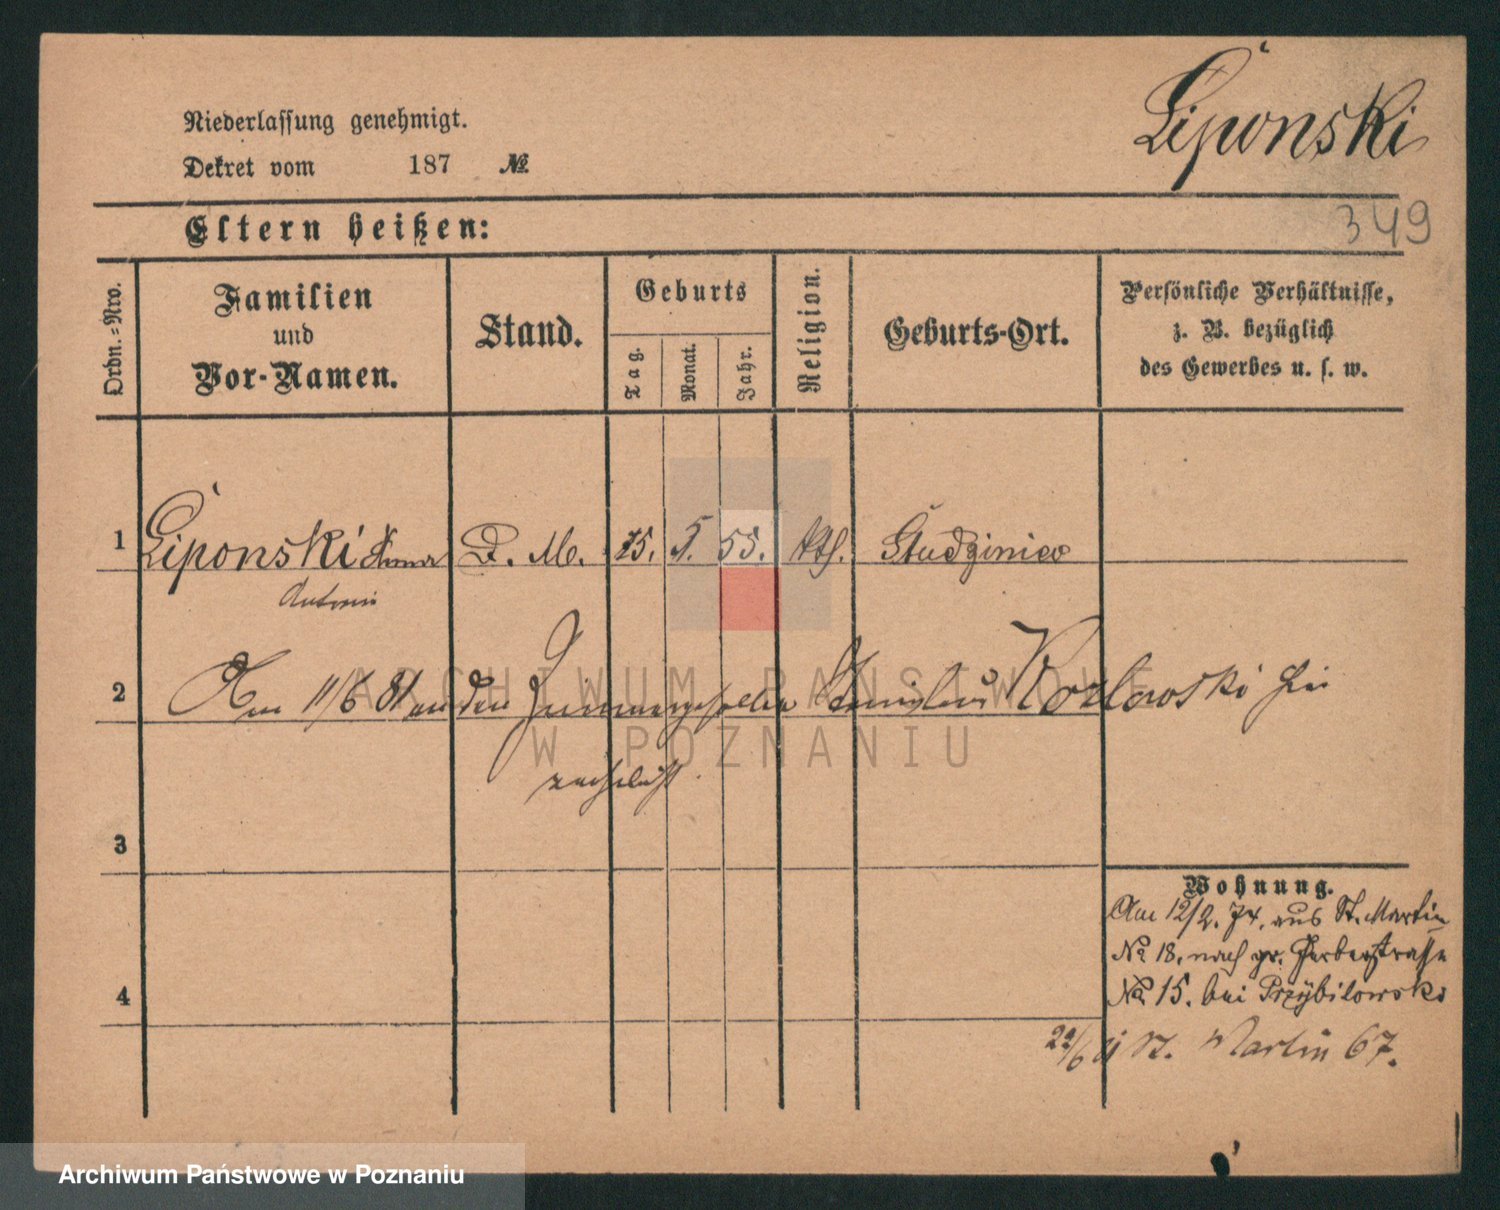 Liponski
Niederlassung genehmigt.
Dekret vom 187 №
349
Eltern heißen:
Ordn.-Nro.
Familien
und
Vor-Namen.
Stand.
Geburts
Tag.
Monat.
Jahr.
Religion.
Geburts-Ort.
Persönliche Verhältnisse,
z. B. bezüglich
des Gewerbes u. s. w.
1 Liponski D. M. 15. 5. 55. kth. Studziniec
2 Am 11/6 81 an den Stanislaus Kozlowski hier
verehelicht.
3
Wohnung.
Am 12/2. 74. aus St. Martin
No 18. nach gr. Gerberstrasse
No 15. bei Przybilowski
4
St. Martin 67.
ARCHIWUM PAŃSTWOWE
W POZNANIU
Archiwum Państwowe w Poznaniu